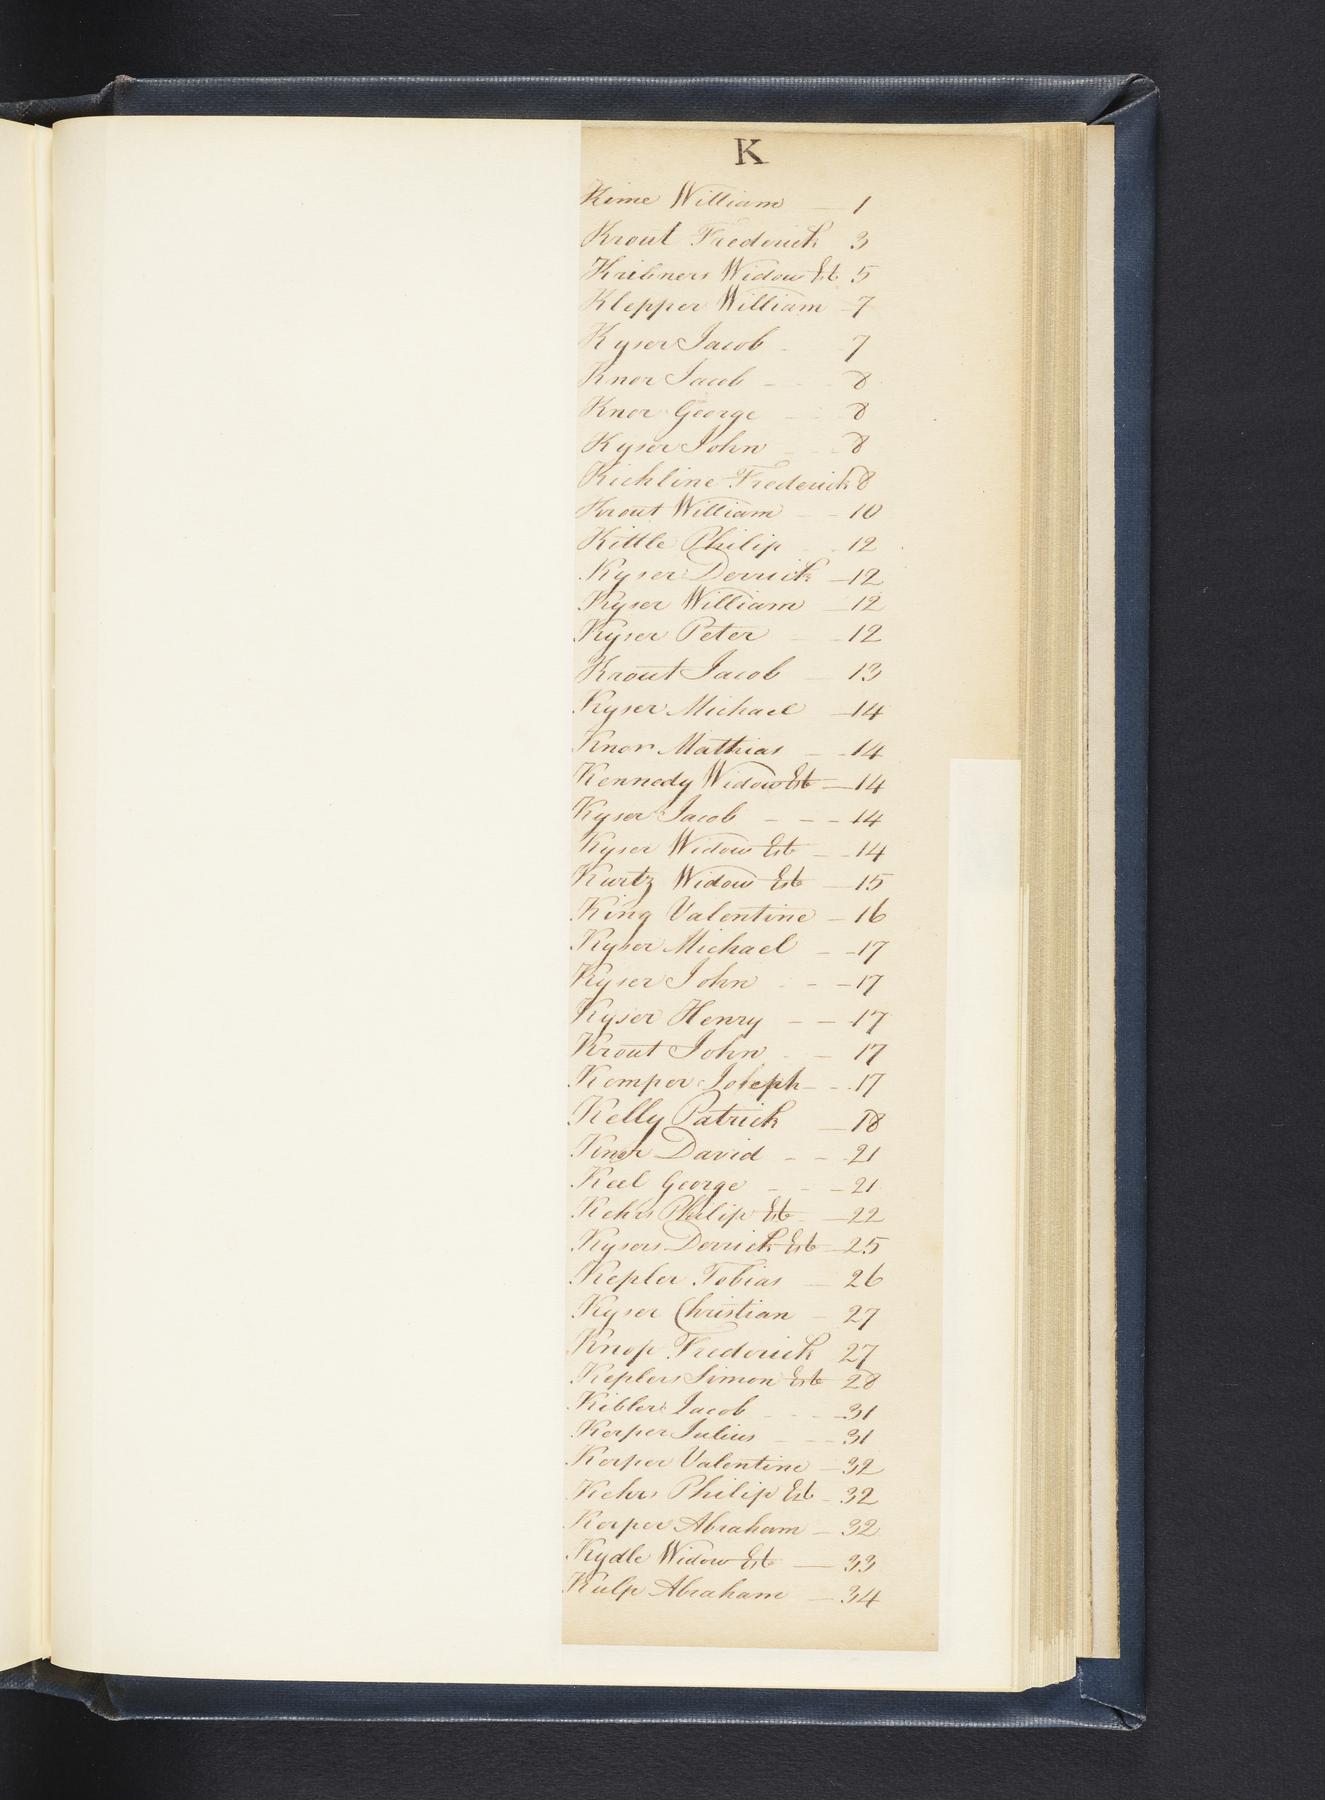 K
Kime William 1
Krout Frederick 3
Kribners Widow Est 5
Klepper William 7
Kyser Jacob 7
Knor Jacob 8
Knor George 8
Kyser John 8
Kichline Frederick 8
Krout William 10
Kittle Philip 12
Kyser Derrick 12
Kyser William 12
Kyser Peter 12
Krout Jacob 13
Kyser Michael 14
Knor Mathias 14
Kennedy Widow Est 14
Kyser Jacob 14
Kyser Widow Est 14
Kurtz Widow Est 15
King Valentine 16
Kyser Michael 17
Kyser John 17
Kyser Henry 17
Krout John 17
Kemper Joseph 17
Kelly Patrick 18
David 21
Keel George 21
Kehrs Philip Est 22
Kysers Derrick Est 25
Kepler Tobias 26
Kyser Christian 27
Knop Frederick 27
Keplers Simon Est 28
Kibler Jacob 31
Kerper Julius 31
Kerper Valentine 32
Kehrs Philip Est 32
Kerper Abraham 32
Kydle Widow Est 33
Kulp Abraham 34